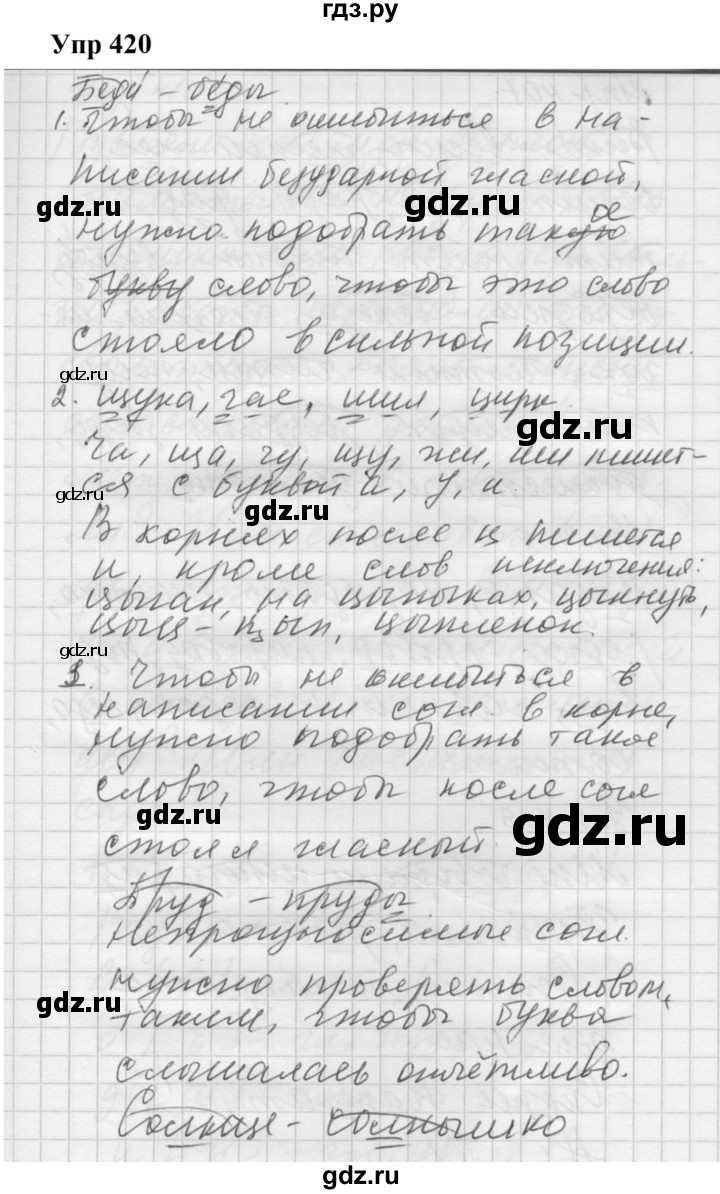 гдз.ру
Упр 420
Беда - беды
1. Чтобы не ошибиться в на-
писании безударной гласной,
gdz.ru gdz.ru
нужно подобрать такое
букву слово, чтобы это слово
стояло в сильной позиции.
gdz.ru
2. щука, час, шил, цирк.
Ча, ща, чу, щу, жи, ши пишет-
ся с буквой а, у, и.
gdz.ru
gdz.ru
В корнях после ц пишется
и, кроме слов исключения:
цыган, на цыпочках, цыкнуть,
цыц - цып, цыпленок.
gdz.ru
3. Чтобы не ошибиться в
написании согл. в корне,
нужно подобрать такое
слово, чтобы после согл
gdz.ru gdz.ru
стоял гласный.
Пруд - пруды
gdz.ru
непроизносимые согл.
нужно проверять словом,
gdz.ru
таким, чтобы буква
слышалась отчётливо.
gdz.ru
Солнце - солнышко
gdz.ru